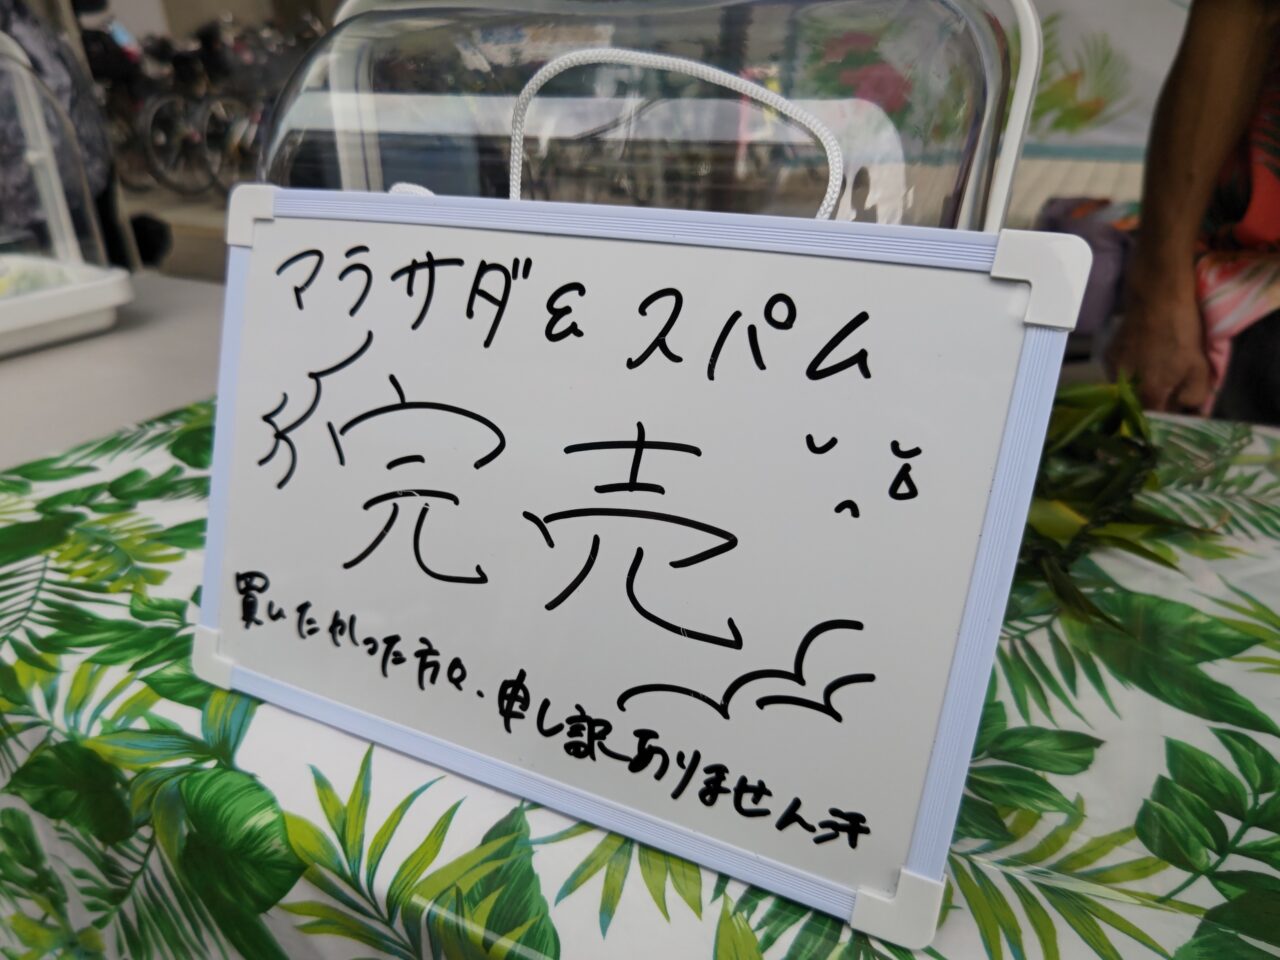 マラサダ& スパム
完売
買いたかった方々、申し訳ありません汗